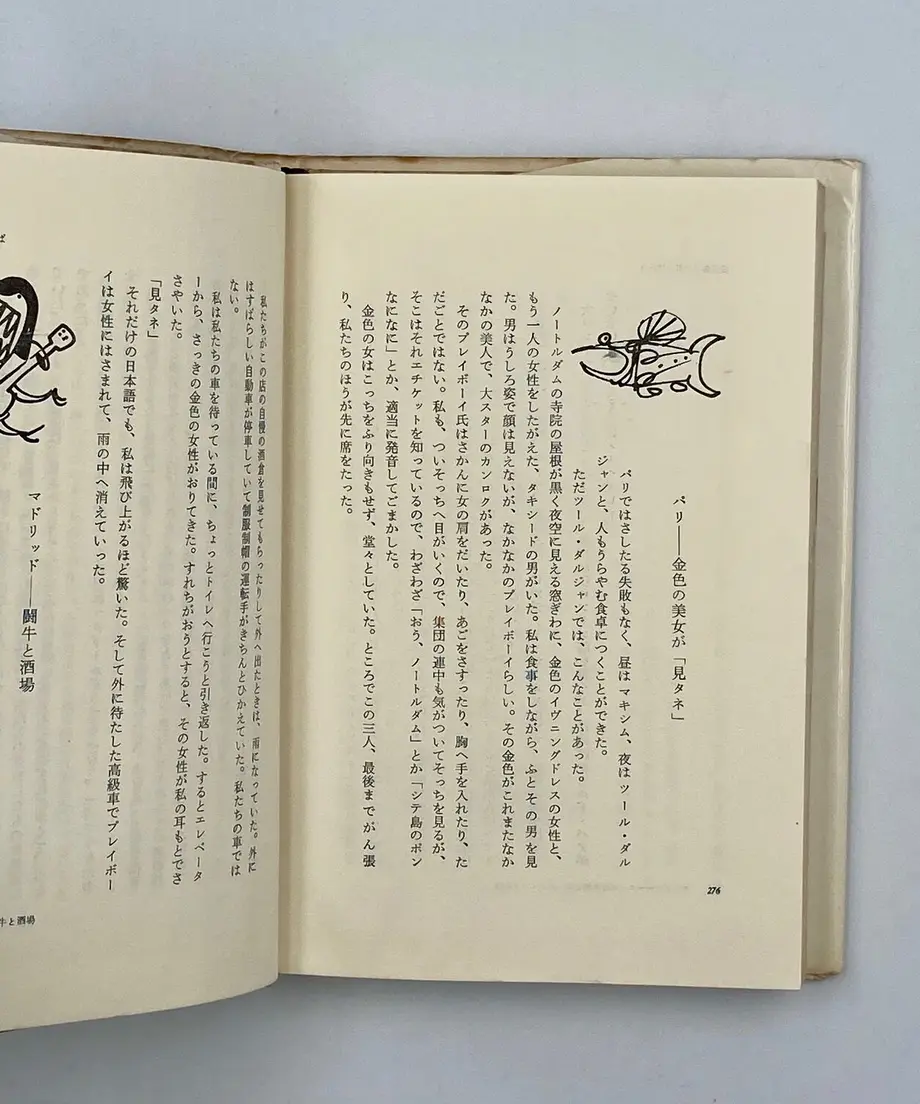 パリ――金色の美女が「見タネ」
パリではさしたる失敗もなく、昼はマキシム、夜はツール・ダル
ジャンと、人もうらやむ食卓につくことができた。
ただツール・ダルジャンでは、こんなことがあった。
ノートルダムの寺院の屋根が黒く夜空に見える窓ぎわに、金色のイヴニングドレスの女性と、
もう一人の女性をしたがえた、タキシードの男がいた。私は食事をしながら、ふとその男を見
た。男はうしろ姿で顔は見えないが、なかなかのプレイボーイらしい。その金色がこれまたなか
なかの美人で、大スターのカンロクがあった。
そのプレイボーイ氏はさかんに女の肩をだいたり、あごをさすったり、胸へ手を入れたり、た
だごとではない。私も、ついそっちへ目がいくので、集団の連中も気がついてそっちを見るが、
そこはそれエチケットを知っているので、わざわざ「おう、ノートルダム」とか「シテ島のポン
なになに」とか、適当に発音してごまかした。
金色の女はこっちをふり向きもせず、堂々としていた。ところでこの三人、最後までがん張
り、私たちのほうが先に席をたった。
276
私たちがこの店の自慢の酒倉を見せてもらったりして外へ出たときは、雨になっていた。外に
はすばらしい自動車が停車していて制服制帽の運転手がきちんとひかえていた。私たちの車では
ない。
私は私たちの車を待っている間に、ちょっとトイレへ行こうと引き返した。するとエレベータ
ーから、さっきの金色の女性がおりてきた。すれちがおうとすると、その女性が私の耳もとでさ
さやいた。
「見タネ」
それだけの日本語でも、私は飛び上がるほど驚いた。そして外に待たした高級車でプレイボー
イは女性にはさまれて、雨の中へ消えていった。
マドリッド――闘牛と酒場
ば
牛と酒場